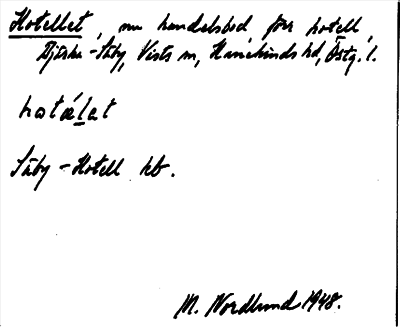 Hotellet, nu handelsbod, förr hotell,
Djurke-Säby, Vists sn, Hanekinds hd, Östg. l.
hotälet
Säby-Hotell kb.
M. Nordlund 1948.